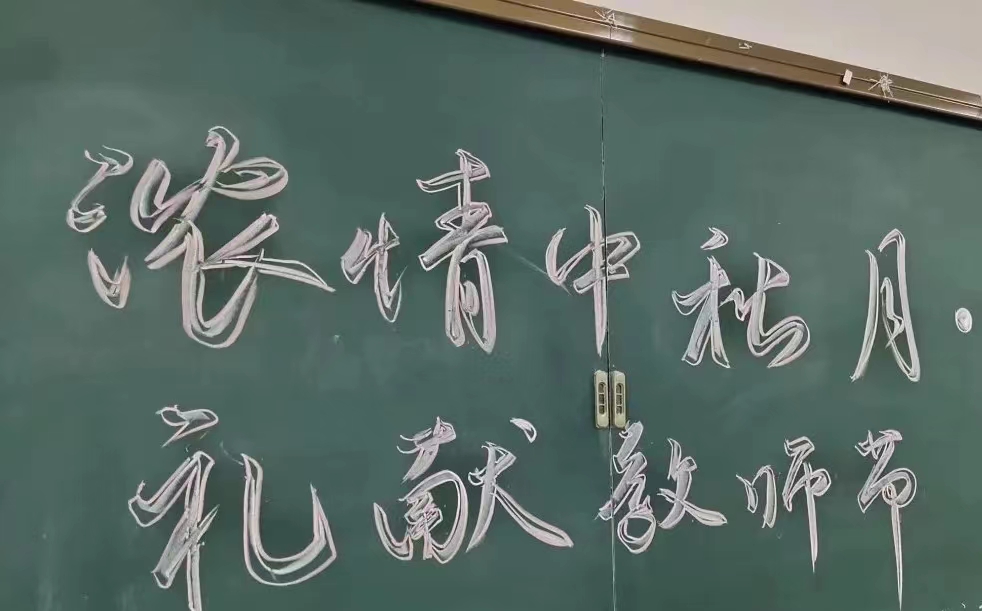 浓情中秋月·
礼献教师节